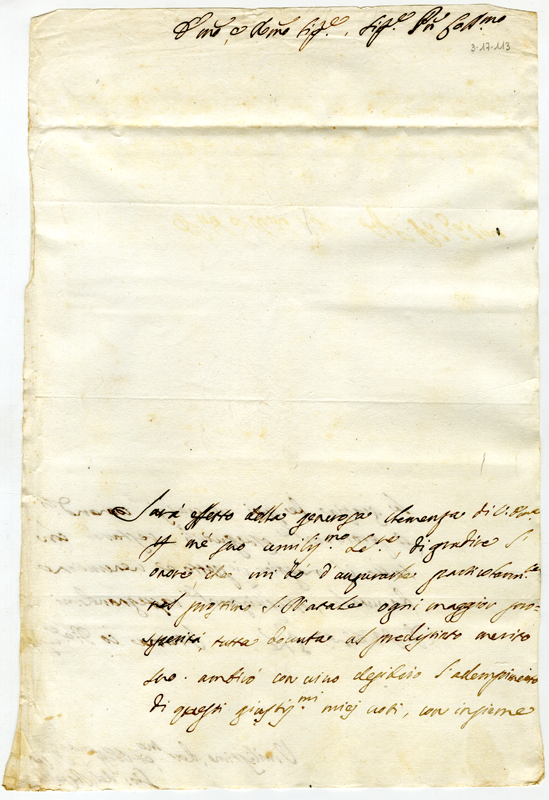 Em̃o, e Rm̃o Sig.re, Sig.re P̃rõn Coll.mo
3-17-113
Sarà effetto della generosa clemenza di V. Em.za
mè suo umiliss.mo Se.re, di gradire l'
onore che mi dò d'augurarle particolarm.te
nel prossimo S. Natale ogni maggior pro-
sperità tutta dovuta al predistinto merito
suo. ambirò con vivo desiderio l'adempimento
di questi giustiss.mi miei voti, con insieme